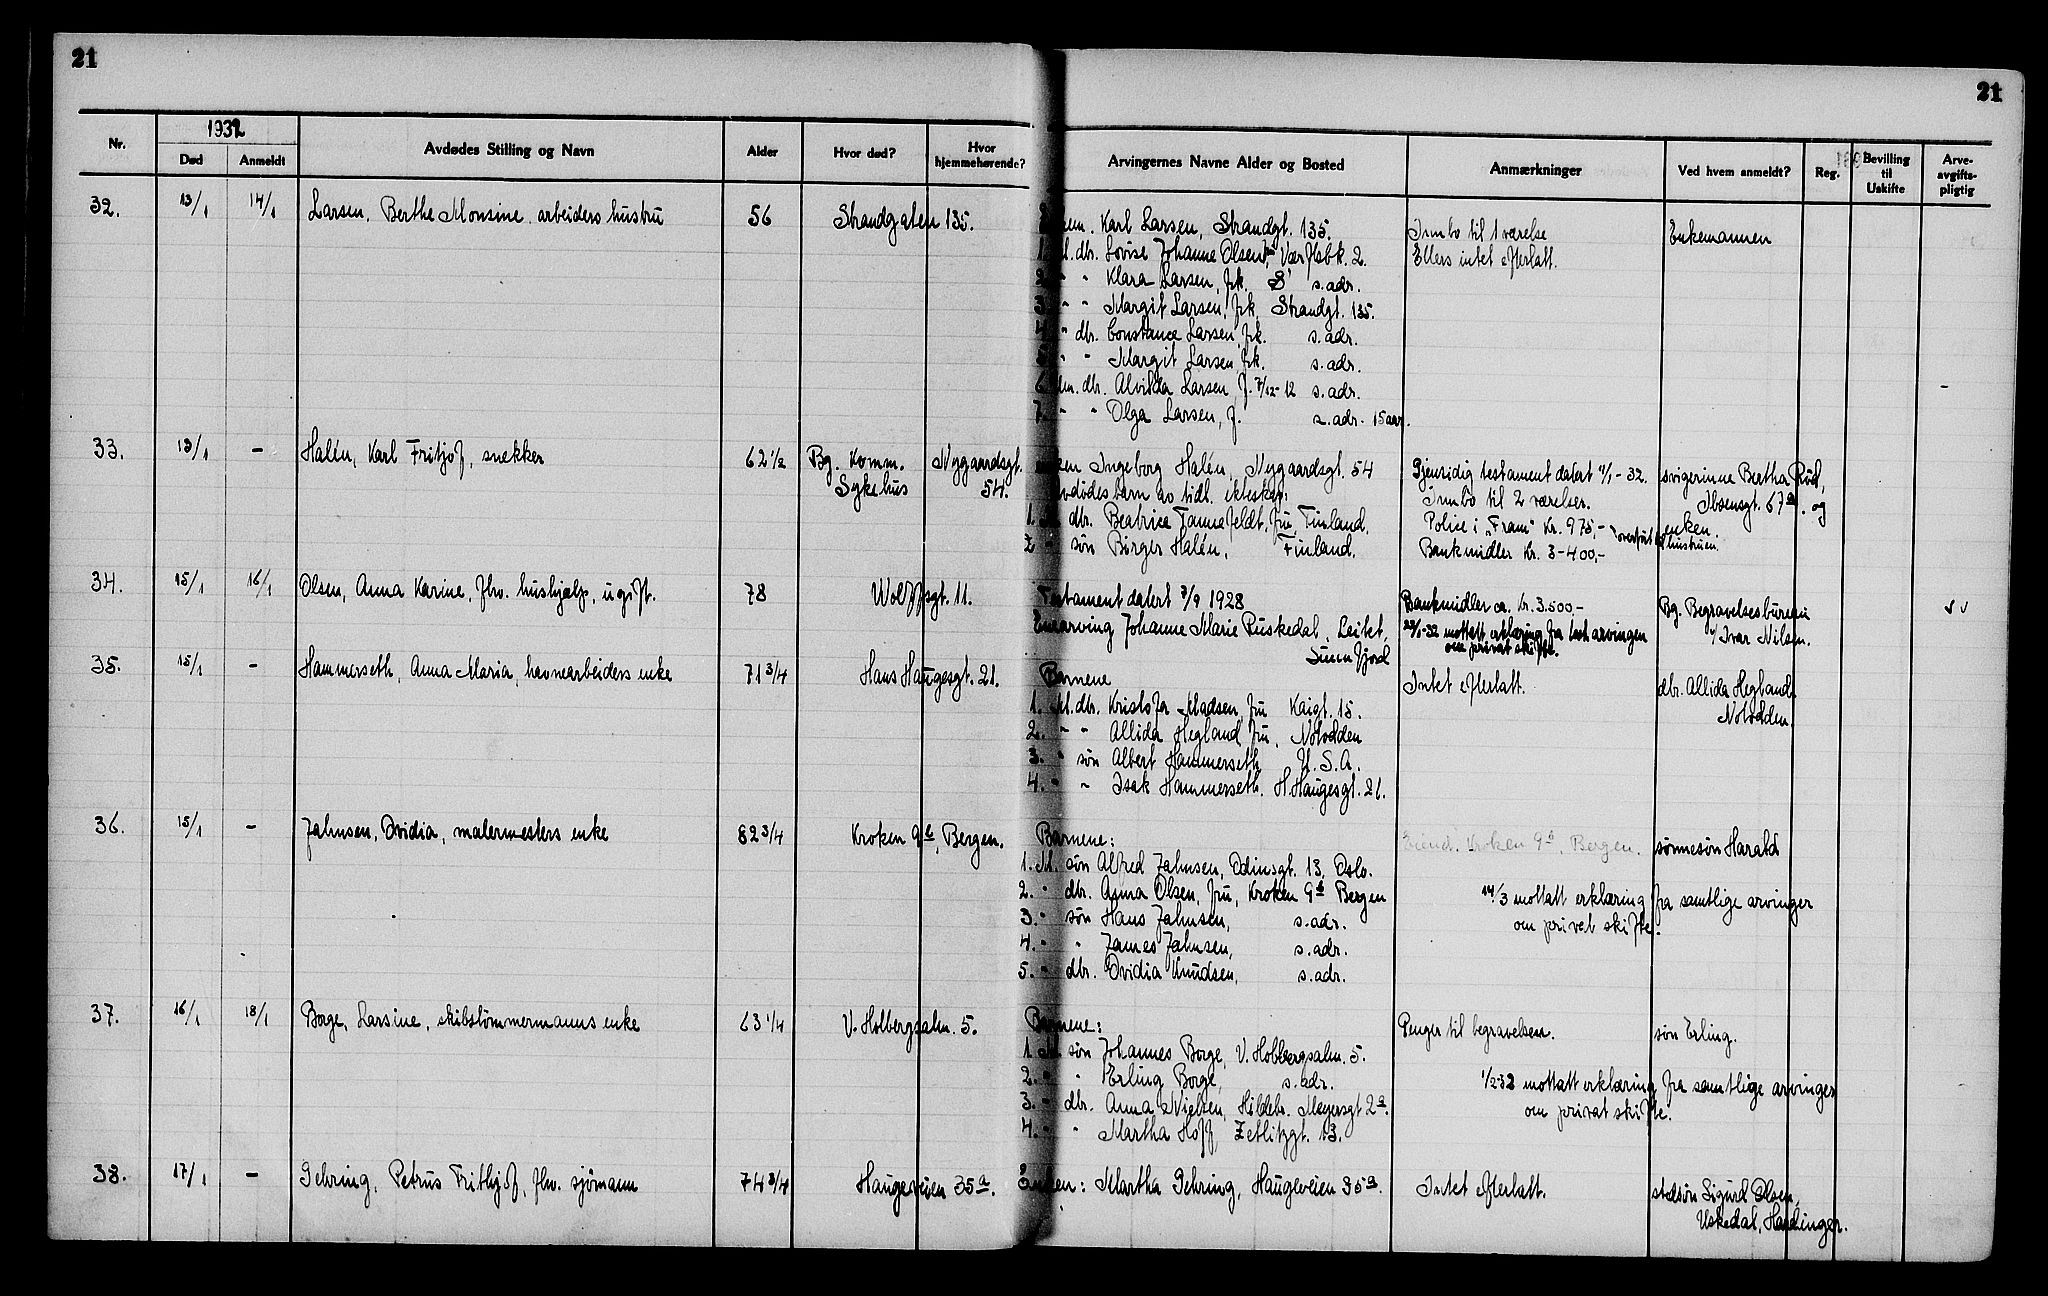 21
21
Nr.
1932
Død
Anmeldt
Avdødes Stilling og Navn
Alder
Hvor død?
Hvor hjemmehørende?
Arvingernes Navne Alder og Bosted
Anmærkninger
Ved hvem anmeldt?
Reg.
Bevilling til Uskifte
Arve-avgifts-pligtig
32. 13/1 14/1 Larsen, Berthe Monsine, arbeiders hustru 56 Strandgaten 135.
Karl Larsen, Strandgt. 135.
1. dbr. Lovise Johanne Olsen, 2.
2. " " Klara Larsen, frk. s. adr.
3. " " Margit Larsen, frk. Strandgt. 135.
4. " dbr. Constance Larsen, frk. s. adr.
5. " " Margit Larsen, frk. s. adr.
6. dbr. Alvilda Larsen, f. 7/12-12 s. adr.
7. " " Olga Larsen, f. s. adr. 15 aar.
Innbo til 1 værelse
Ellers intet efterlatt.
Enkemannen
33. 13/1 - Halén, Karl Fritjof, snekker 62 1/2 Bg. Komm. Nygaardsgt.
Sykehus 54.
Enken Ingeborg Halén, Nygaardsgt. 54
Avdødes barn av tidl. ekteskap:
1. dbr. Beatrice Fru, Finland.
2. " søn Birger Halén, Finland.
Gjensidig testament datert -32.
Innbo til 2 værelser.
Police i "Fram" Kr. 975,-
Bankmidler Kr. 3-400,-
hustruen.
svigerinne Bertha Rød,
Ibsensgt. 67a. og
enken.
34. 15/1 16/1 Olsen, Anna Karine, fhv. hushjelp, ugift. 78 Wolffsgt. 11.
Testament datert 7/9 1928
Enearving Johanne Marie Puskedal, Leitet,
Sunnfjord
Bankmidler ca. Kr. 3.500,-
-32 mottatt erklæring fra test arvingen
om privat skifte.
Bg. Begravelsesbureau
v/ Ivar Nilsen.
v v
35. 15/1 - Hammerseth, Anna Maria, havnearbeiders enke 71 3/4 Hans Haugesgt. 21.
Barnene
1. M. dbr. Kristofa Madsen, fru Kaigt. 15.
2. " " Allida Hegland, fru, Notodden
3. " søn Albert Hammerseth U.S.A.
4. " " Isak Hammerseth. H. Haugesgt. 21.
Intet efterlatt.
dbr. Allida Hegland.
Notodden.
36. 15/1 - Jahnsen, Ovidia, malermesters enke 82 3/4 Kroken 9b, Bergen.
Barnene:
1. M. søn Alfred Jahnsen, Odinsgt. 13, Oslo.
2. " dbr. Anna Olsen, fru, Kroken 9b Bergen
3. " søn Hans Jahnsen, s. adr.
4. " " James Jahnsen, s. adr.
5. " dbr. Ovidia Knudsen, s. adr.
Eiend. Kroken 9b, Bergen.
14/3 mottatt erklæring fra samtlige arvinger
om privat skifte.
sønnesøn Harald
37. 16/1 18/1 Borge, Larsine, skibstømmermanns enke 63 1/4 V. Holbergsalm. 5.
Barnene:
1. M. søn Johannes Borge, V. Holbergsalm. 5.
2. " " Erling Borge, s. adr.
3. " dbr. Anna Nielsen, Hildebr. Meyersgt 2a.
4. " " Martha Hoff, Zetlitzgt. 13.
Penger til begravelsen.
1/2-32 mottatt erklæring fra samtlige arvinger
om privat skifte.
søn Erling.
38. 17/1 - Gehring, Petrus Frithjof, fhv. sjømann 74 3/4 Haugeveien 35a.
Enken: Martha Gehring, Haugeveien 35a.
Intet efterlatt.
stedsøn Sigurd Olsen,
Uskedal, Hardanger.